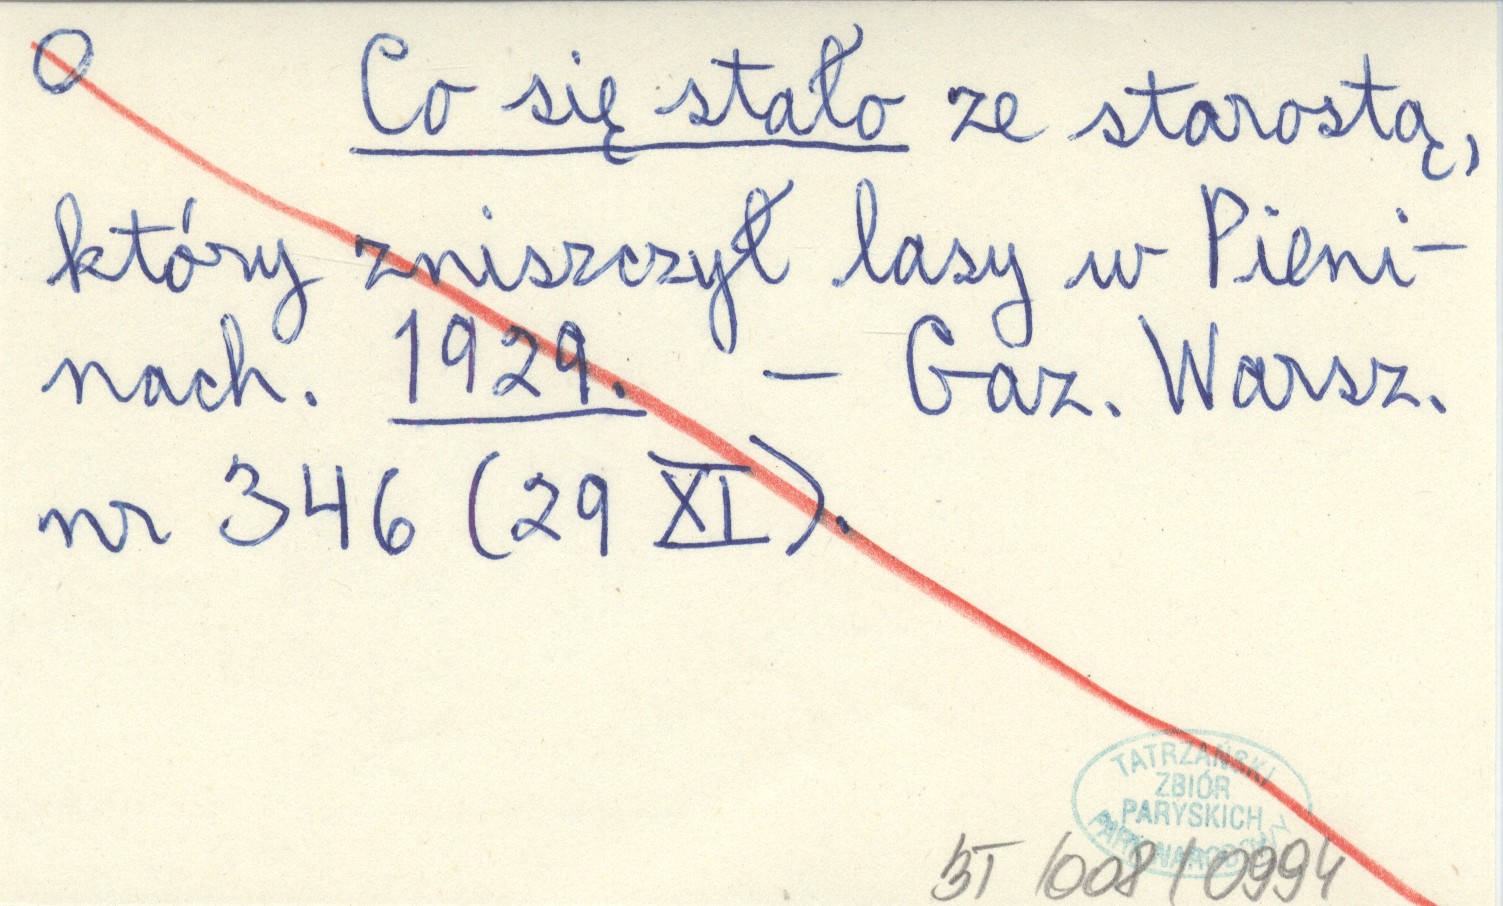 O Co się stało ze starostą,
który zniszczył lasy w Pieni-
nach. 1929. — Gaz. Warsz.
nr 346 (29 XI).
TATRZAŃSKI
ZBIÓR
PARYSKICH
PARK NARODOWY
BT/008/0994